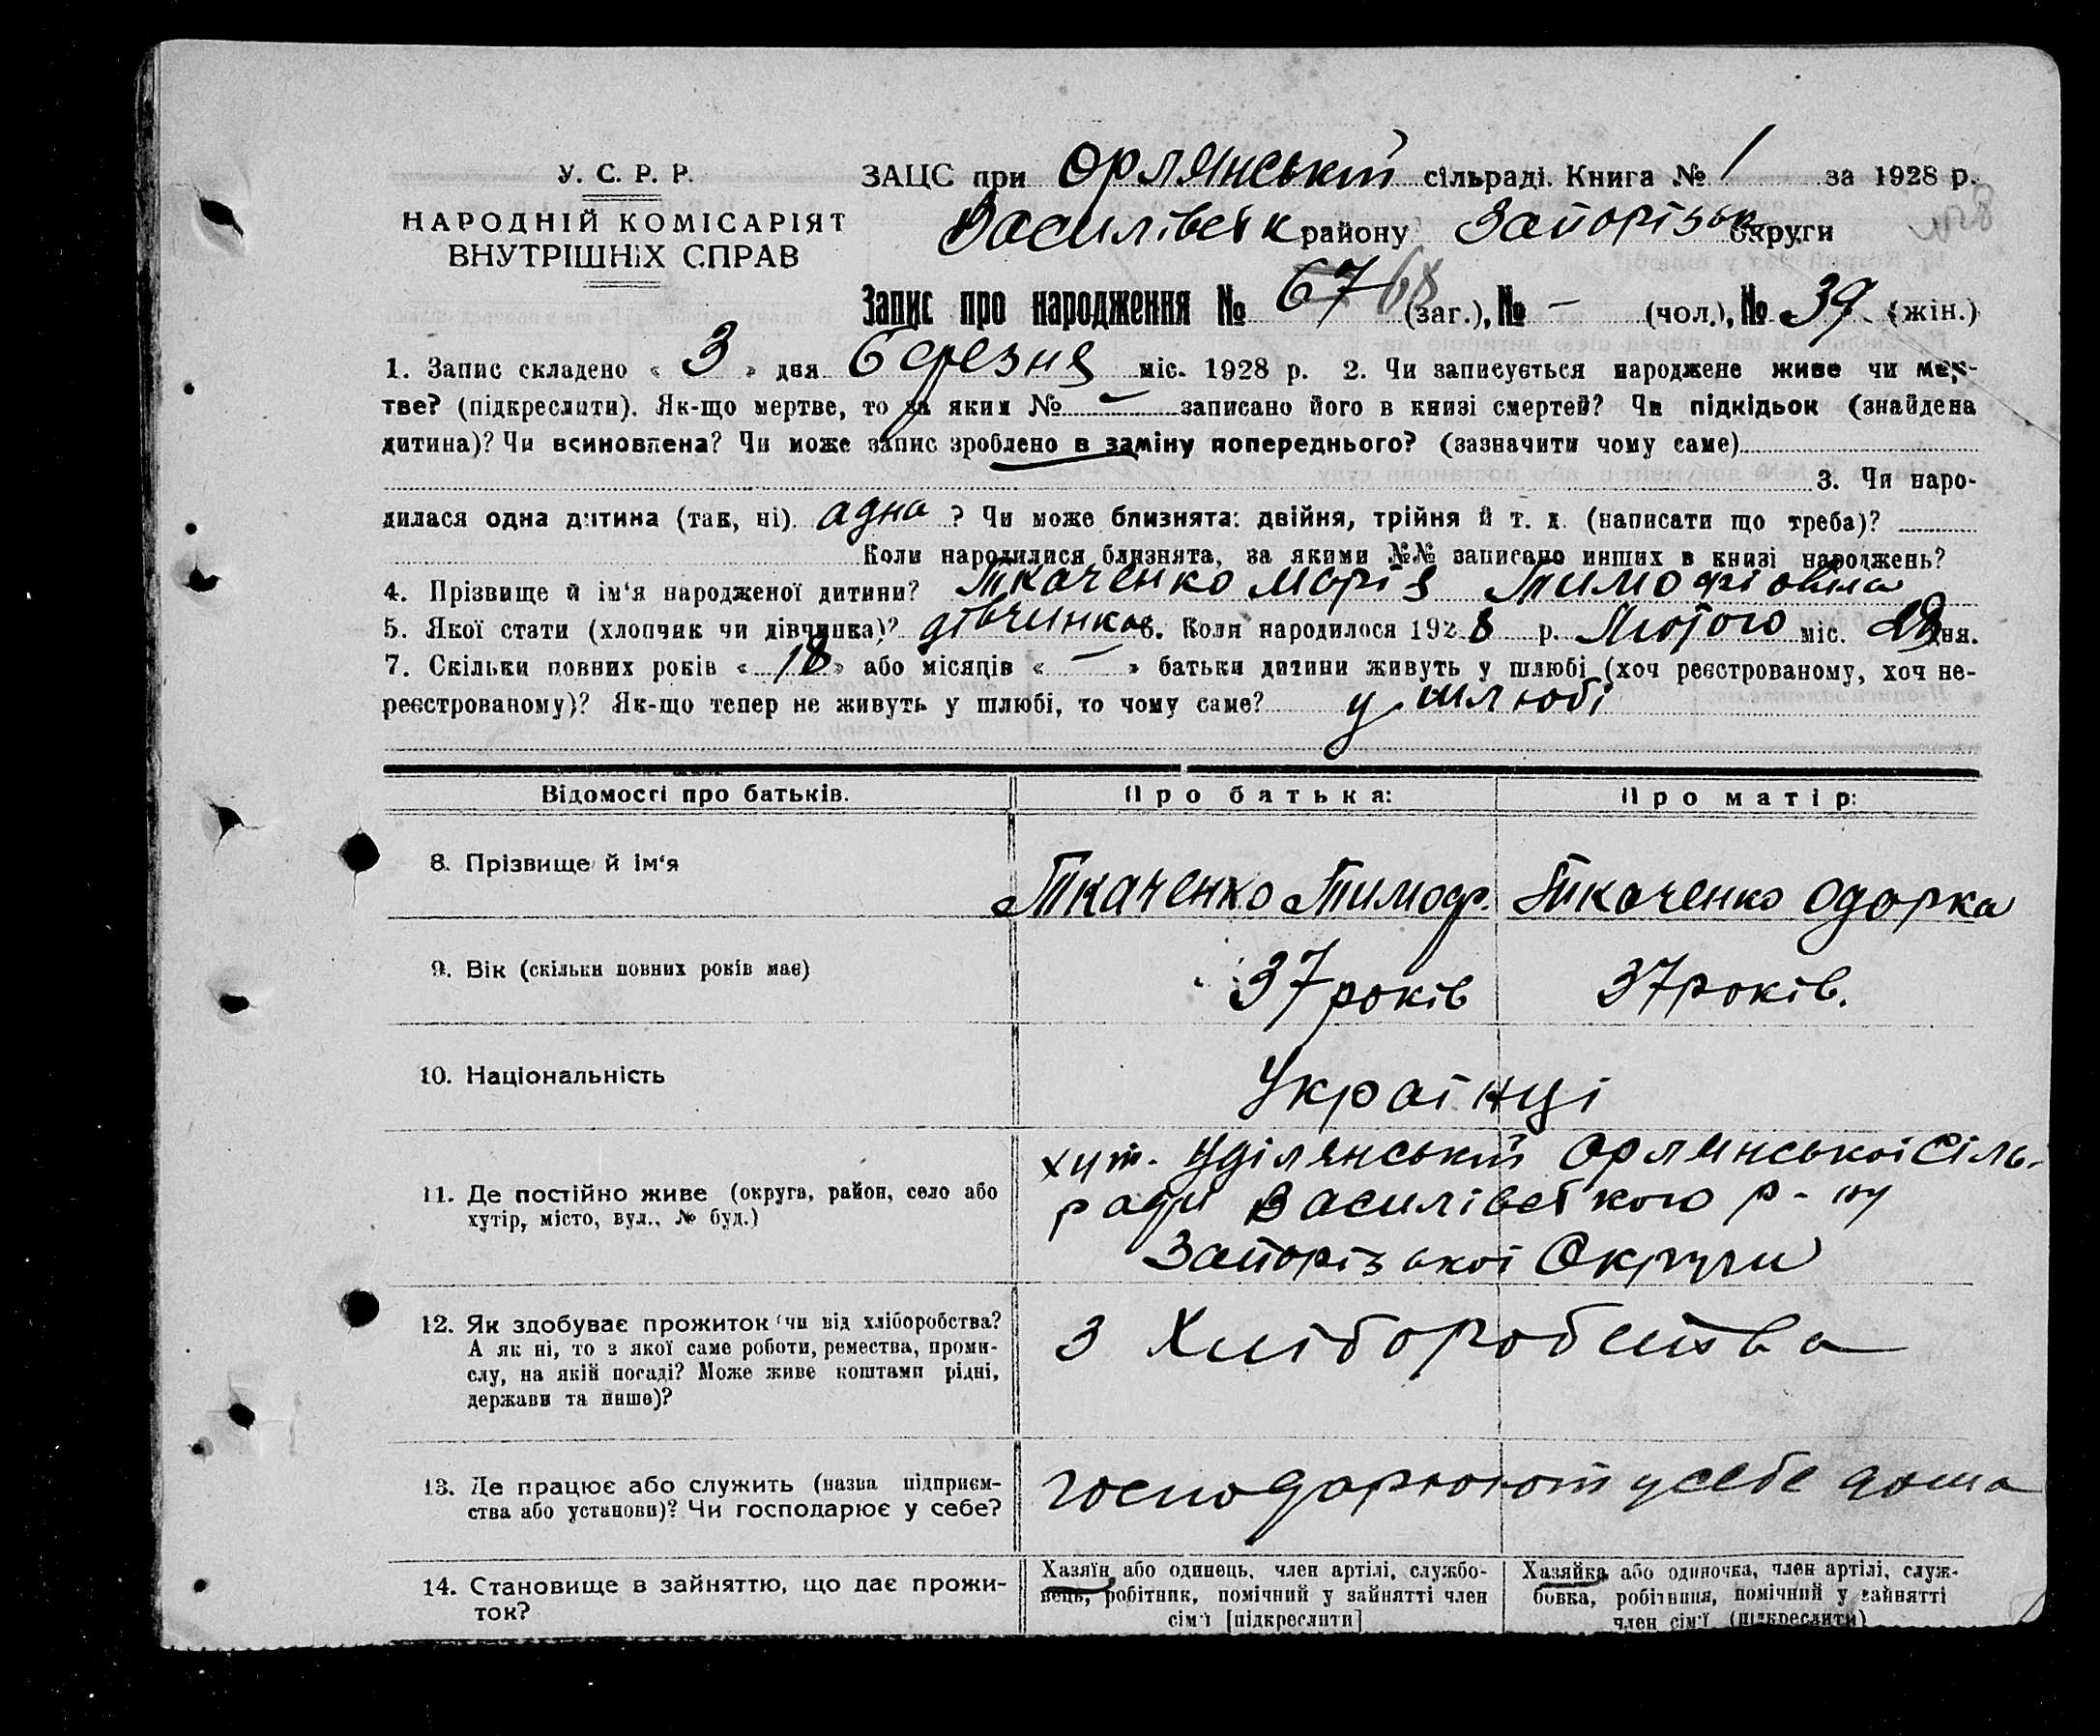 У. С. Р. Р.
НАРОДНІЙ КОМІСАРІЯТ
ВНУТРІШНІХ СПРАВ
ЗАЦС при Орлянській сільраді. Книга № 1 за 1928 р.
Василівськ району Запорізьк округи
Запис про народження № 67 68 (заг.), № – (чол.), № 39 (жін.)
1. Запис складено « 3 » дня березня міс. 1928 р. 2. Чи записується народжене живе чи мер-
тве? (підкреслити). Як-що мертве, то за яким № – записано його в книзі смертей? Чи підкідьок (знайдена
дитина)? Чи всиновлена? Чи може запис зроблено в заміну попереднього? (зазначити чому саме)
3. Чи наро-
дилася одна дитина (так, ні) адна ? Чи може близнята: двійня, трійня й т. д. (написати що треба)?
Коли народилися близнята, за якими №№ записано инших в книзі народжень?
4. Прізвище й ім'я народженої дитини? Ткаченко Марія Тимофіовна
5. Якої стати (хлопчик чи дівчинка)? дівчинка 6. Коли народилося 1928 р. Лютого міс. дня.
7. Скільки повних років « 18 » або місяців « – » батьки дитини живуть у шлюбі (хоч реєстрованому, хоч не-
реєстрованому)? Як-що тепер не живуть у шлюбі, то чому саме? у шлюбі
Відомості про батьків.
Про батька:
Про матір:
8. Прізвище й ім'я
Ткаченко Тимоф.
Ткаченко Одарка
9. Вік (скільки повних років має)
37 років
37 років.
10. Національність
Українці
11. Де постійно живе (округа, район, село або
хутір, місто, вул., № буд.)
хут. Уділянський Орлянської сіль.
ради Василівського р-ну
Запорізької Округи
12. Як здобуває прожиток (чи від хліборобства?
А як ні, то з якої саме роботи, ремества, проми-
слу, на якій посаді? Може живе коштами рідні,
держави та инше)?
з Хліборобства
13. Де працює або служить (назва підприєм-
ства або установи)? Чи господарює у себе?
господарюют у себе дома
14. Становище в зайняттю, що дає прожи-
ток?
Хазяїн або одинець, член артілі, службо-
вець, робітник, помічний у зайнятті член
сім'ї [підкреслити]
Хазяйка або одиночка, член артілі, служ-
бовка, робітниця, помічний у зайнятті
член сім'ї (підкреслити)